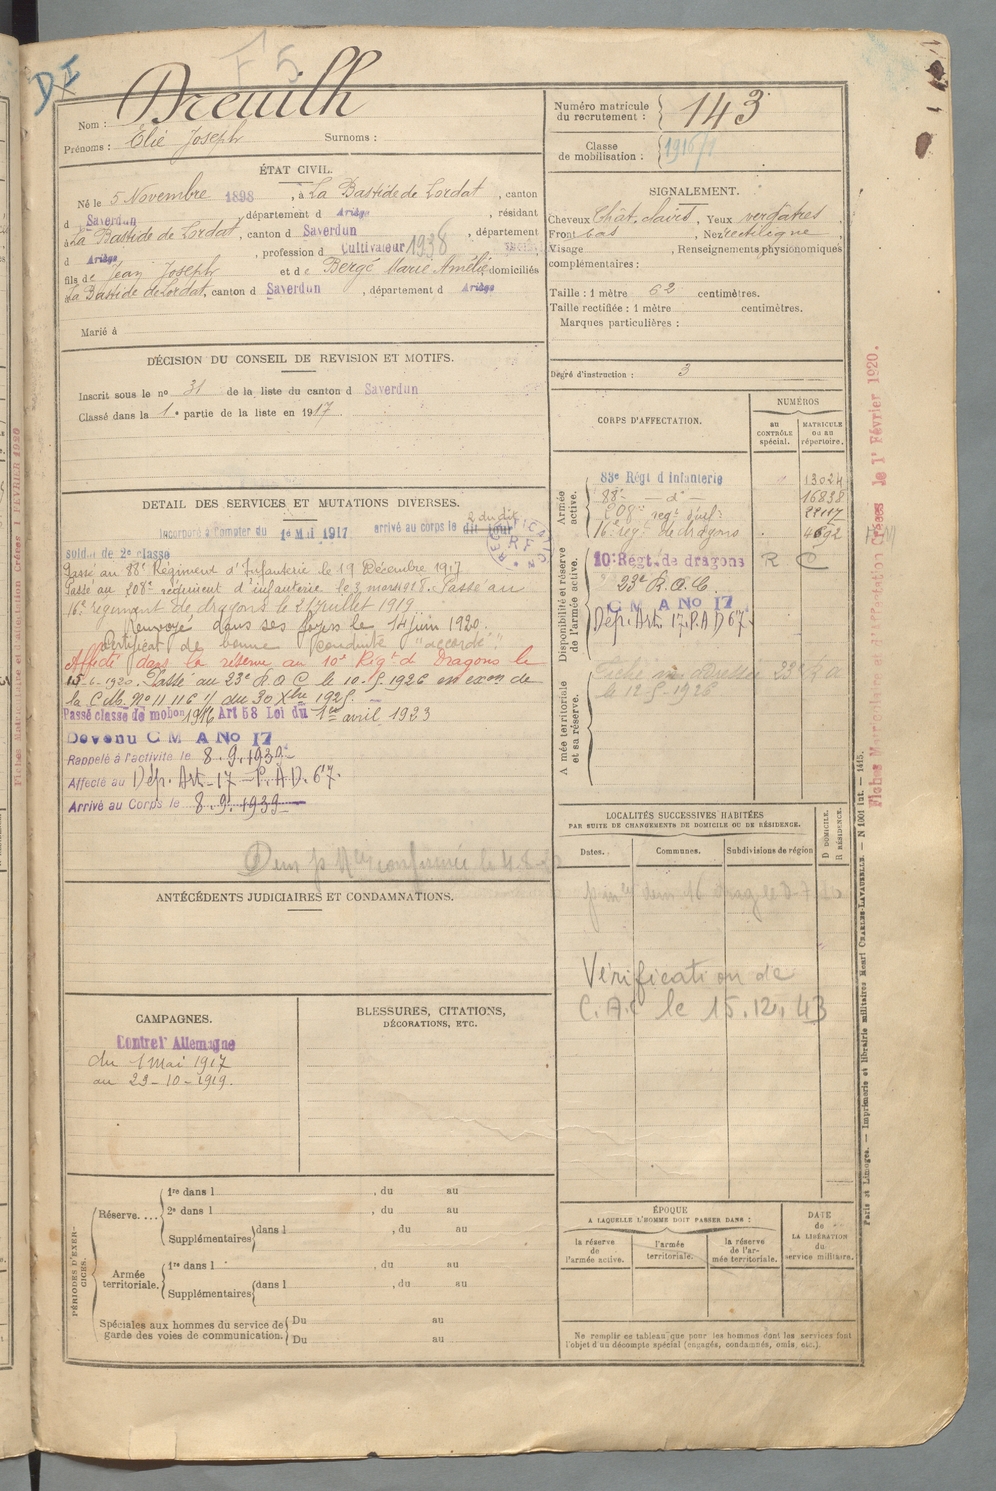 D I
F 5
Nom : Dreuilh
Prénoms : Elie Joseph Surnoms :
ÉTAT CIVIL.
Né le 5 Novembre 1898, à La Bastide de Lordat, canton
d Saverdun, département d Ariège, résidant
à La Bastide de Lordat, canton d Saverdun, département
d Ariège, profession d Cultivateur 1938
fils de Jean Joseph et de Bergé Marie Amélie domiciliés
La Bastide de Lordat, canton d Saverdun, département d Ariège
Marié à
DÉCISION DU CONSEIL DE REVISION ET MOTIFS.
Inscrit sous le no 31 de la liste du canton d Saverdun
Classé dans la 1e partie de la liste en 1917.
DETAIL DES SERVICES ET MUTATIONS DIVERSES.
2 du dit
Incorporé à Compter du 1e Mai 1917 arrivé au corps le dit jour
soldat de 2e classe
Passé au 88e Régiment d'Infanterie le 19 Décembre 1917
Passé au 208e régiment d'infanterie le 3 mars 1918. Passé au
16e régiment de dragons le 21 juillet 1919.
Renvoyé dans ses foyers le 14 juin 1920.
Certificat de bonne conduite "accordé".
Affecté dans la réserve au 10e Régt de Dragons le
15-6-1920. Passé au 23e R.O.C. le 10-5-1926 en exon de
la C.M. No 11 116 1/ du 30 Xbre 1925.
Passé classe de mobon 1916 Art 58 Loi du 1er avril 1923
Devenu C M A No 17
Rappelé à l'activité le 8.9.1939
Affecté au Dép. Art. 17 - P.A.D. 67.
Arrivé au Corps le 8.9.1939
ANTÉCÉDENTS JUDICIAIRES ET CONDAMNATIONS.
CAMPAGNES.
Contre l'Allemagne
du 1 Mai 1917
au 23-10-1919.
BLESSURES, CITATIONS,
DÉCORATIONS, ETC.
PÉRIODES D'EXERCICES.
Réserve.... 1re dans l , du au
2e dans l , du au
Supplémentaires dans l , du au
Armée territoriale. 1re dans l , du au
Supplémentaires dans l , du au
Spéciales aux hommes du service de garde des voies de communication. Du au
Du au
Numéro matricule du recrutement : 143
Classe de mobilisation : 1916/1
SIGNALEMENT.
Cheveux Chât. clairs, Yeux verdâtres
Front bas, Nez rectiligne,
Visage , Renseignements physionomiques
complémentaires :
Taille : 1 mètre 62 centimètres.
Taille rectifiée : 1 mètre centimètres.
Marques particulières :
Degré d'instruction : 3
CORPS D'AFFECTATION.
NUMÉROS
au CONTRÔLE spécial.
MATRICULE ou au répertoire.
Armée active.
83e Régt d'Infanterie 13024
88e - do - 16838
208e regt d'inf.
16e régt de dragons 4692
Disponibilité et réserve de l'armée active.
10e Régt. de dragons R C
23e R.O.C.
C M A No 17
Dép. Art. 17. P.A.D 67
Armée territoriale et sa réserve.
le 12-5-1926
LOCALITÉS SUCCESSIVES HABITÉES
PAR SUITE DE CHANGEMENTS DE DOMICILE OU DE RÉSIDENCE.
Dates. Communes. Subdivisions de région
D DOMICILE.
R RÉSIDENCE.
Vérification de
C.A.C le 15.12.43
ÉPOQUE
A LAQUELLE L'HOMME DOIT PASSER DANS :
la réserve de l'armée active.
l'armée territoriale.
la réserve de l'armée territoriale.
DATE de LA LIBÉRATION du service militaire.
Ne remplir ce tableau que pour les hommes dont les services font
l'objet d'un décompte spécial (engagés, condamnés, omis, etc.).
Paris et Limoges. — Imprimerie et librairie militaires Henri CHARLES-LAVAUZELLE. — N 1001 int. — 1415.
Fiches Matricule et d'Affectation Créées le 1r Février 1920.